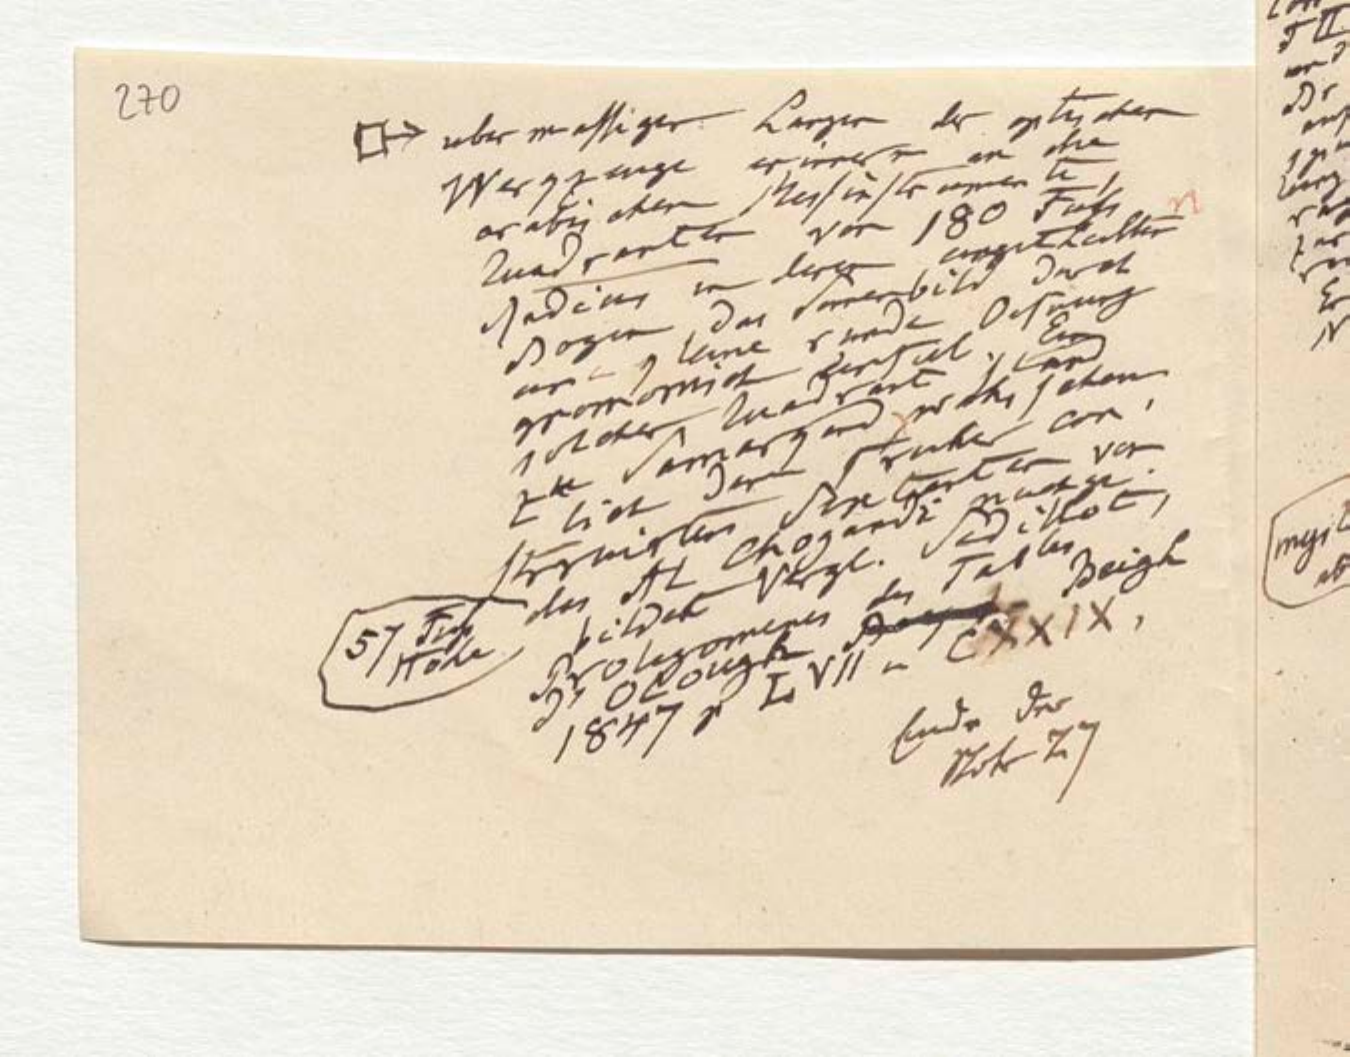 270
□→ übermässigen Längen der optischen
Werkzeuge erinnern an die
arabischen Messinstrumente,
Quadranten von 180 Fuß
Radius in deren eingetheilten
Bogen das Sonnenbild durch
eine kleine runde Öfnung
gnomonisch einfiel. Ein
solcher Quadrant stand
zu Samarqand wahrschein
lich dem früher con,
struirten Sextanten von
57 Fuß
Höhe
des Al Chogandi nachge
bildet. Vergl. Sedillot,
Prolegomenes des Tables
d'Oloug Beigh
1847 p LVII u CXXIX,
Ende der
Note 27